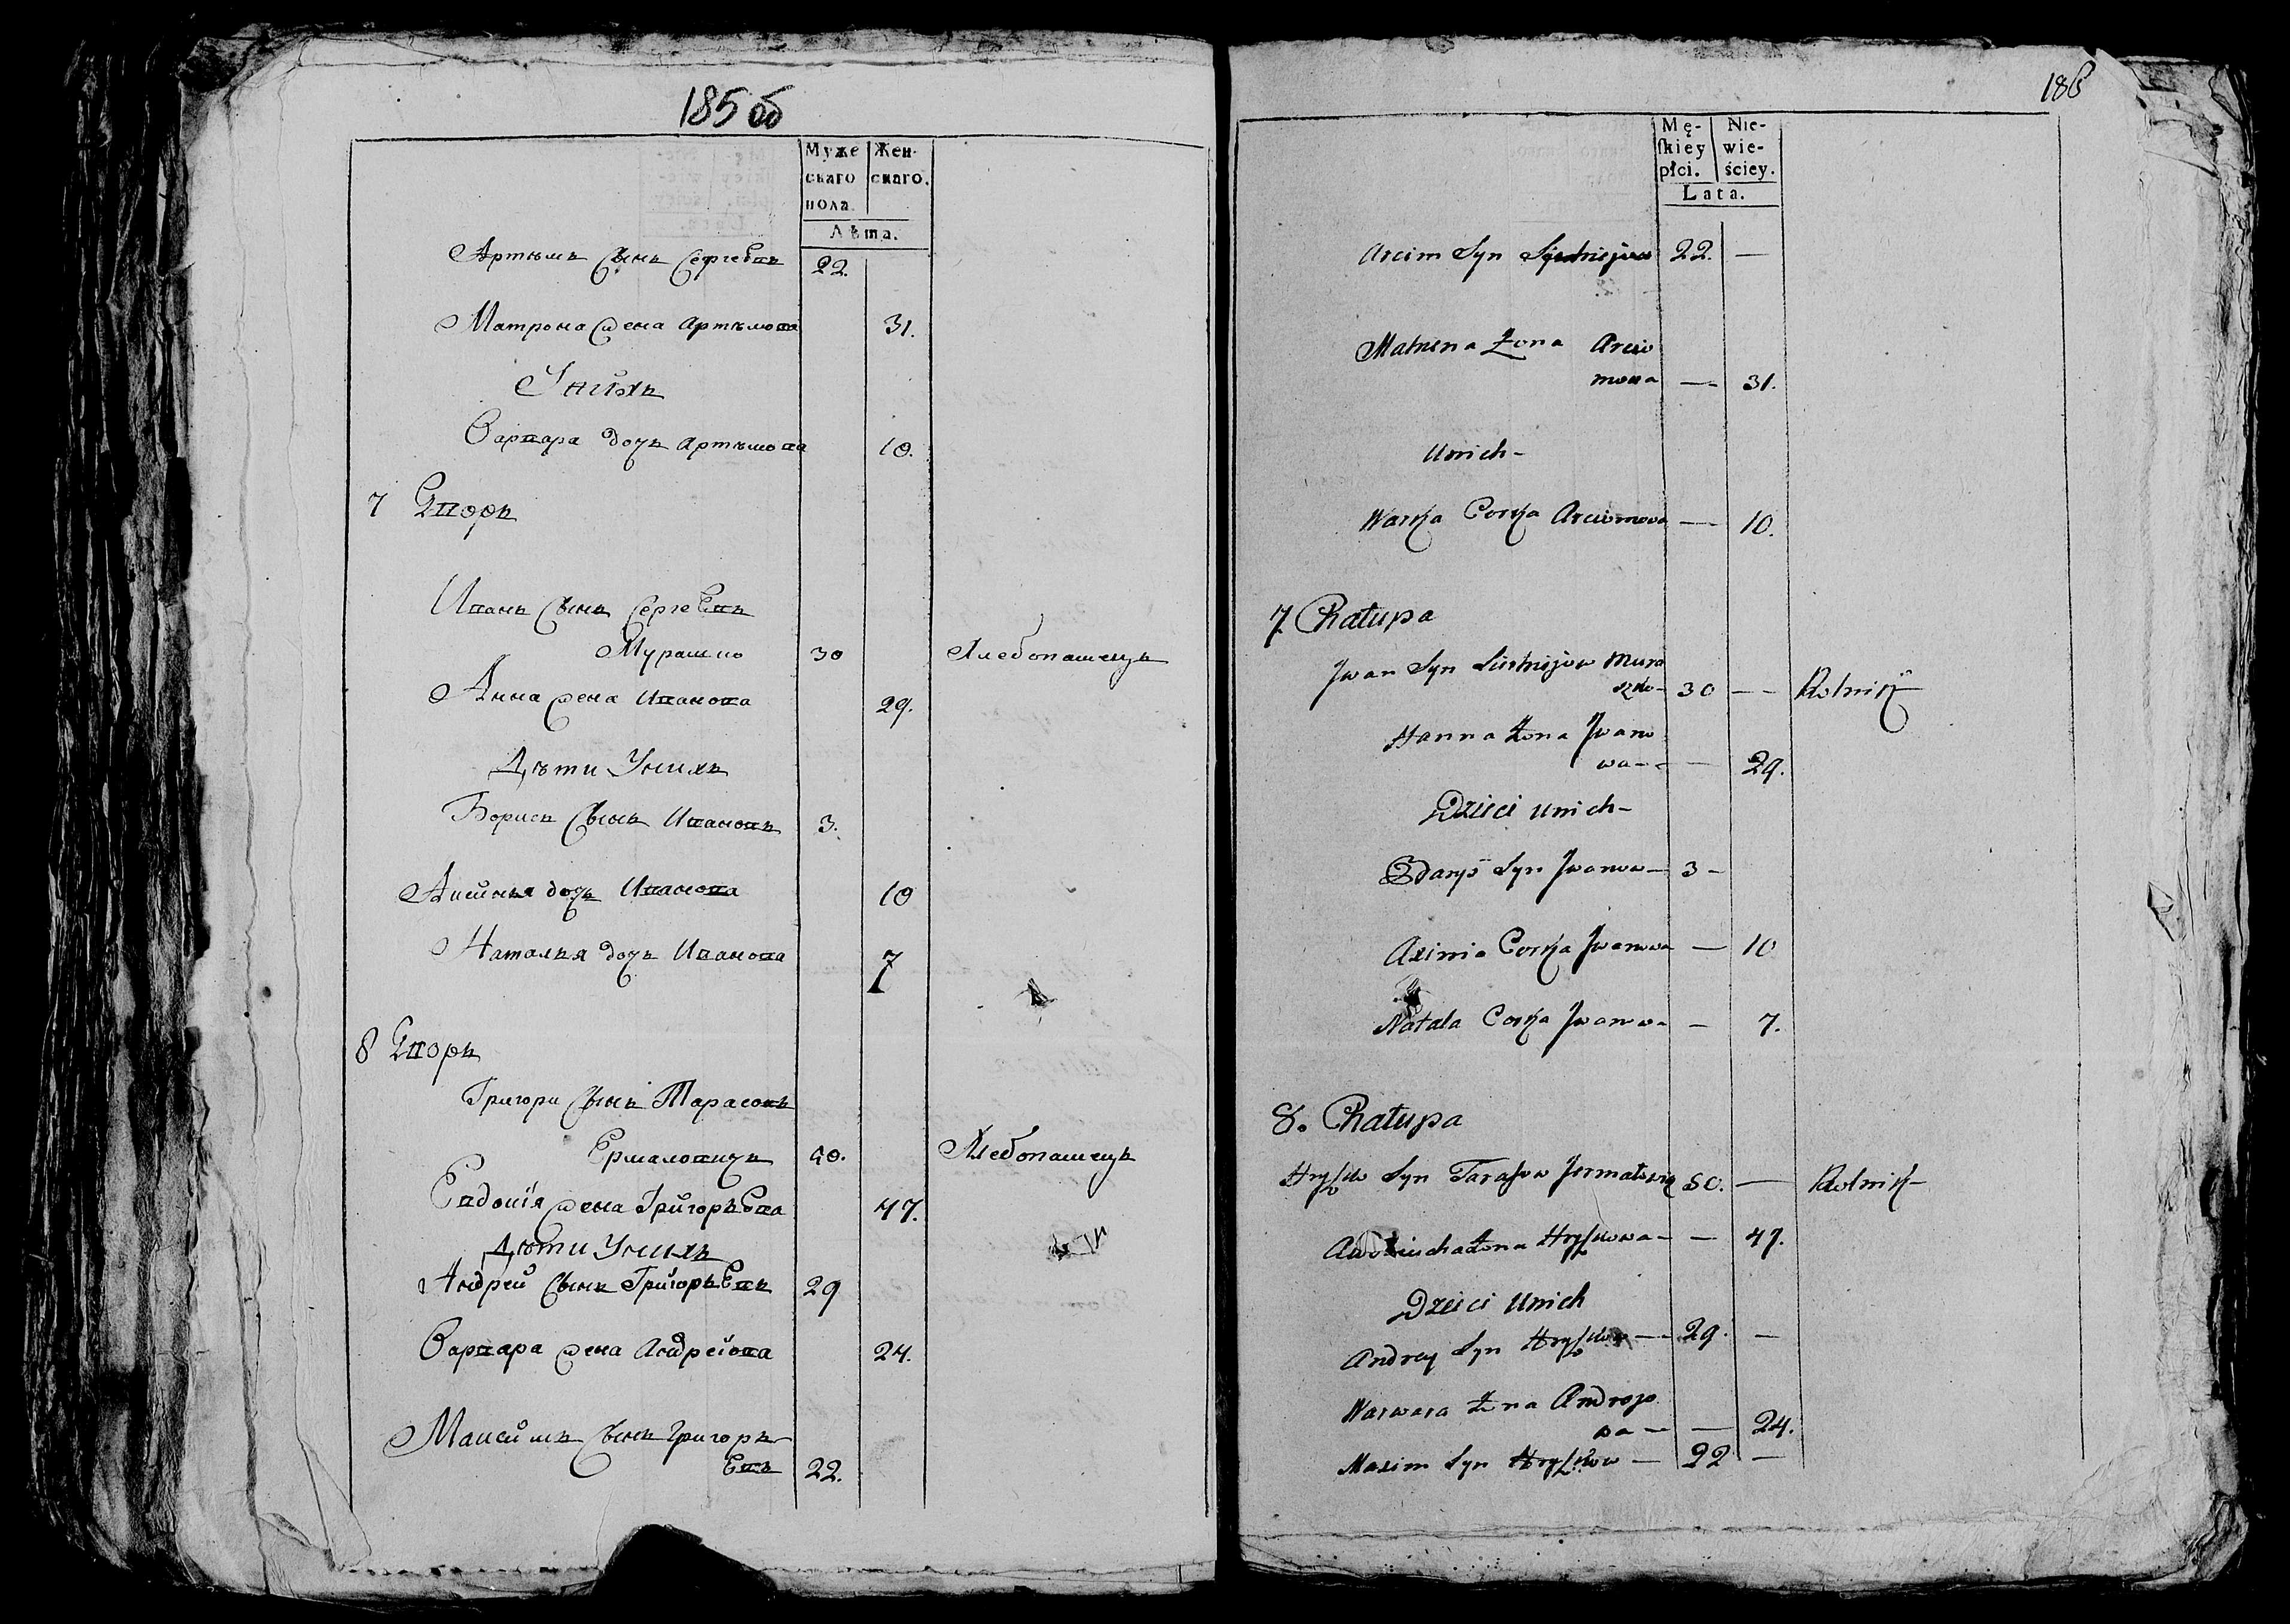 185 об
Муже Жен-
скаго скаго.
пола.
Лѣта.
Артѣмъ сынъ Сергеевъ 22
Матрона жена Артѣмова 31.
Унихъ
Варвара дочь Артѣмова 10.
7 Дворъ
Иванъ сынъ Сергеевъ
Мурашко 30 Хлебопашецъ
Анна жена Иванова 29.
Дѣти Унихъ
Борисъ сынъ Ивановъ 3.
Аксинья дочь Иванова 10
Наталья дочь Иванова 7
8 Дворъ
Григори сынъ Тарасовъ
Ермаловичъ 40. Хлебопашецъ
Евдокія жена Григорьева 47.
Дѣти Унихъ
Андрей сынъ Григорьевъ 29
Варвара жена Андреіова 24.
Максимъ сынъ Григорь
евъ 22.
186
Mę- Nie-
ſkiey wie-
płci. ściey.
Lata.
Arcim Syn 22. —
Matrena Żona Arcio
mowa — 31.
Unich -
Warka Corka Arciomowa — 10.
7. Chałupa
Jwan Syn Sierhiejow Mura
szko - 30 — Rolnik
Hanna Żona Jwano
wa - - — 29.
Dzieci Unich -
Syn Jwanow — 3 -
Axinia Corka Jwanowa — 10
Natala Corka Jwanowa — 7.
8. Chałupa
Hryſko Syn Taraſow Jermałowicz 50. — Rolnik -
Żona Hryſkowa - — 47.
Dzieci Unich
Andrey Syn Hryſkow — 29. —
Warwara Żona Androjo
wa — — 24.
Maxim Syn Hryſkow — 22 —